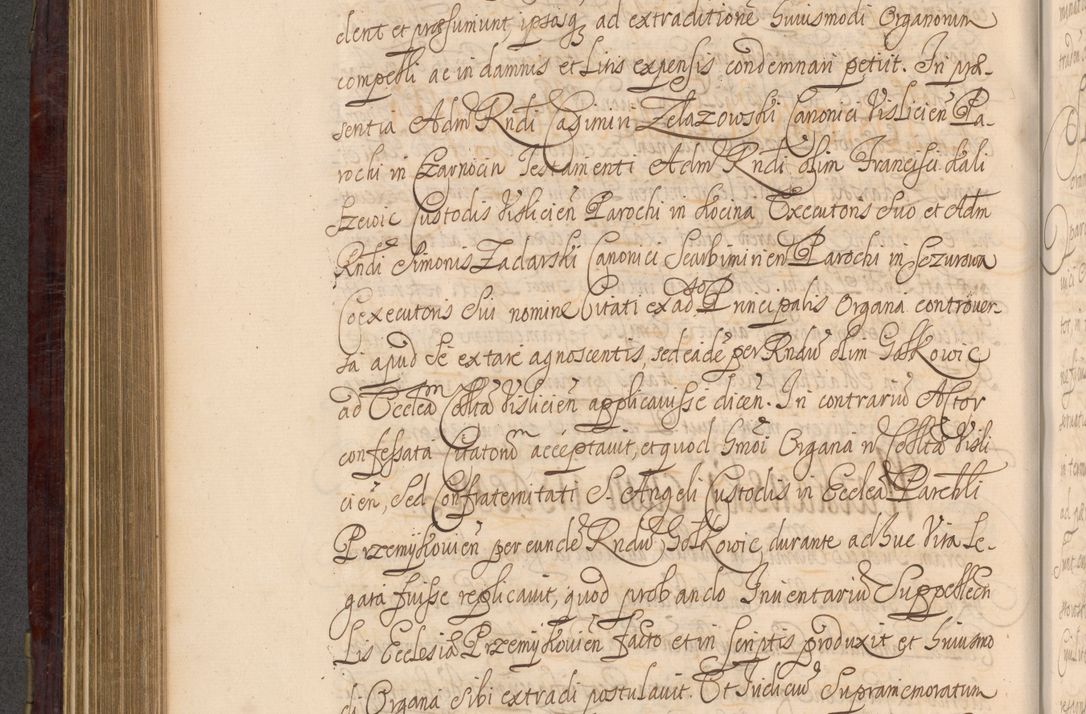 dent et præsumunt, ipsosq ad extraditione huiusmodi Organorum
compelli ac in damnis et Litis expensis condemnari petiit. In præ-
sentia Adm Rndi Casimiri Zelazowski Canonici Vislicien Pa-
rochi in Czarnocin Testamenti Adm Rndi olim Francisci Kali
szewic Custodis Vislicien Parochi in Kocina Executoris Suo et Adm
Rndi Simonis Zadarski Canonici Scarbimirien Parochi in Sezurowa
Coexecutoris Sui nomine Citati ex ad Principalis Organa controver-
sa apud Se extare agnoscentis, sed eade per Rndu olim Gołkowic
ad Eccleam Colltam Vislicien applicavisse dicen. In contrariu Actor
confessata Citatorum acceptavit, et quod hmoi Organa n Colltæ Visli
cien, Sed Confraternitati S. Angeli Custodis in Ecclea Parchli
Przemykovien per eunde Rndu Gołkowic, durante adhuc Vita Le-
gata fuisse replicavit, quod probando Inventariu Suppellecti
lis Ecclesiæ Przemykovien facto et in scriptis produxit et huiusmo
di Organa Sibi extradi postulavit. Et Iudiciu Supramemoratum